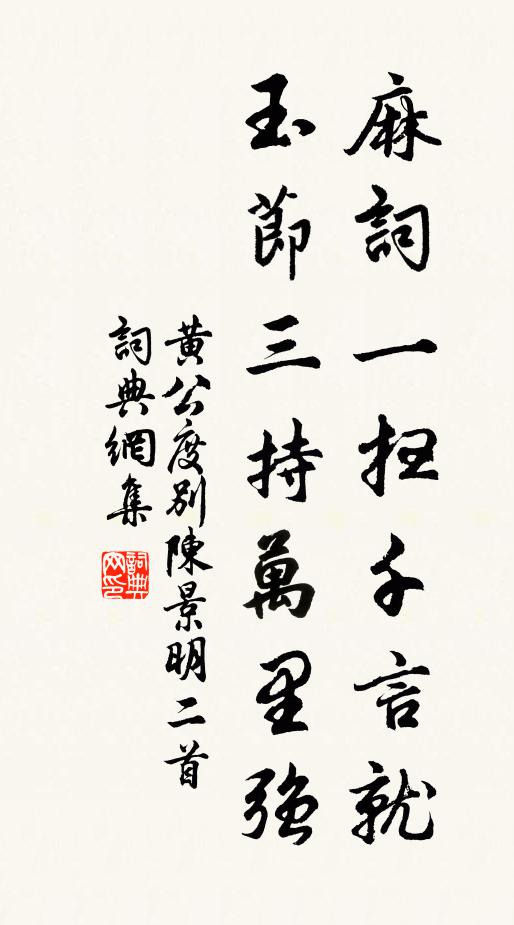 麻詞一扫千言就
玉節三持萬里強
黃公度別陳景明二首
詞典網集
詞典
网印